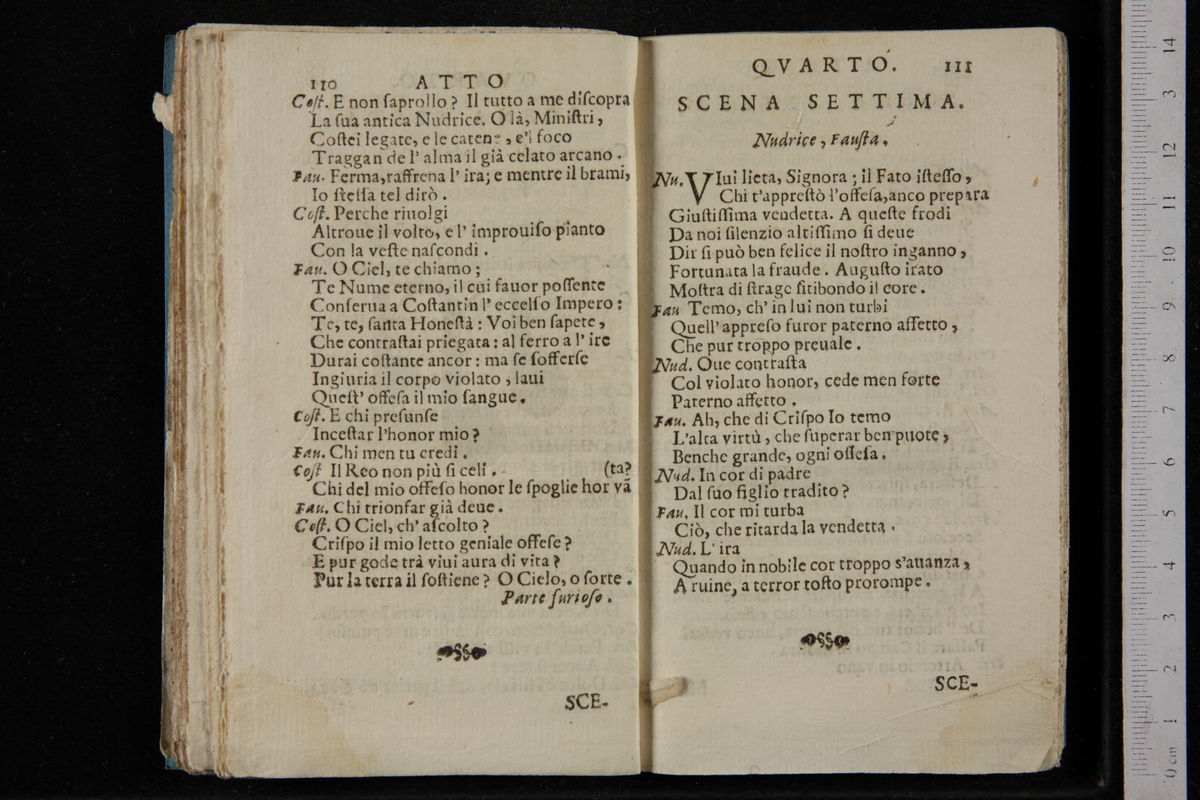 110 ATTO
Coſt. E non ſaprollo? Il tutto a me diſcopra
La ſua antica Nudrice. O là, Miniſtri,
Coſtei legate, e le catene, e'l foco
Traggan de l' alma il già celato arcano.
Fau. Ferma, raffrena l' ira; e mentre il brami,
Io ſteſſa tel dirò.
Coſt. Perche riuolgi
Altroue il volto, e l' improuiſo pianto
Con la veſte naſcondi.
Fau. O Ciel, te chiamo;
Te Nume eterno, il cui fauor poſſente
Conſerua a Coſtantin l' eccelſo Impero:
Te, te, ſanta Honeſtà: Voi ben ſapete,
Che contraſtai priegata: al ferro a l' ire
Durai coſtante ancor: ma ſe ſofferſe
Ingiuria il corpo violato, laui
Queſt' offeſa il mio ſangue.
Coſt. E chi preſunſe
Inceſtar l'honor mio?
Fau. Chi men tu credi.
Coſt Il Reo non più ſi celi. (ta?
Chi del mio offeſo honor le ſpoglie hor vā
Fau. Chi trionfar già deue.
Coſt. O Ciel, ch' aſcolto?
Criſpo il mio letto geniale offeſe?
E pur gode trà viui aura di vita?
Pur la terra il ſoſtiene? O Cielo, o ſorte.
Parte furioſo.
SCE-
QVARTO. 111
SCENA SETTIMA.
Nudrice, Fauſta.
Nu. VIui lieta, Signora; il Fato iſteſſo,
Chi t'appreſtò l'offeſa, anco prepara
Giuſtiſſima vendetta. A queſte frodi
Da noi ſilenzio altiſſimo ſi deue
Dir ſi può ben felice il noſtro inganno,
Fortunata la fraude. Auguſto irato
Moſtra di ſtrage ſitibondo il core.
Fau Temo, ch' in lui non turbi
Quell' appreſo furor paterno affetto,
Che pur troppo preuale.
Nud. Oue contraſta
Col violato honor, cede men forte
Paterno affetto.
Fau. Ah, che di Criſpo Io temo
L'alta virtù, che ſuperar ben puote,
Benche grande, ogni offeſa.
Nud. In cor di padre
Dal ſuo figlio tradito?
Fau. Il cor mi turba
Ciò, che ritarda la vendetta.
Nud. L' ira
Quando in nobile cor troppo s'auanza,
A ruine, a terror toſto prorompe.
SCE-